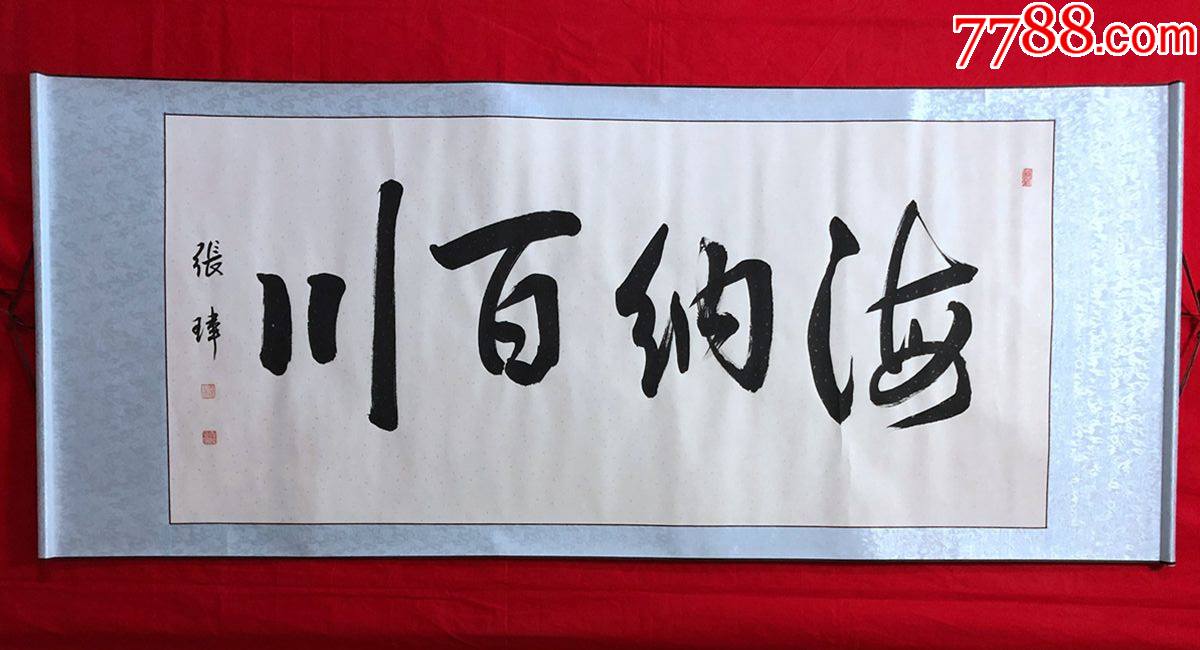 7788.com
海纳百川
張瑋